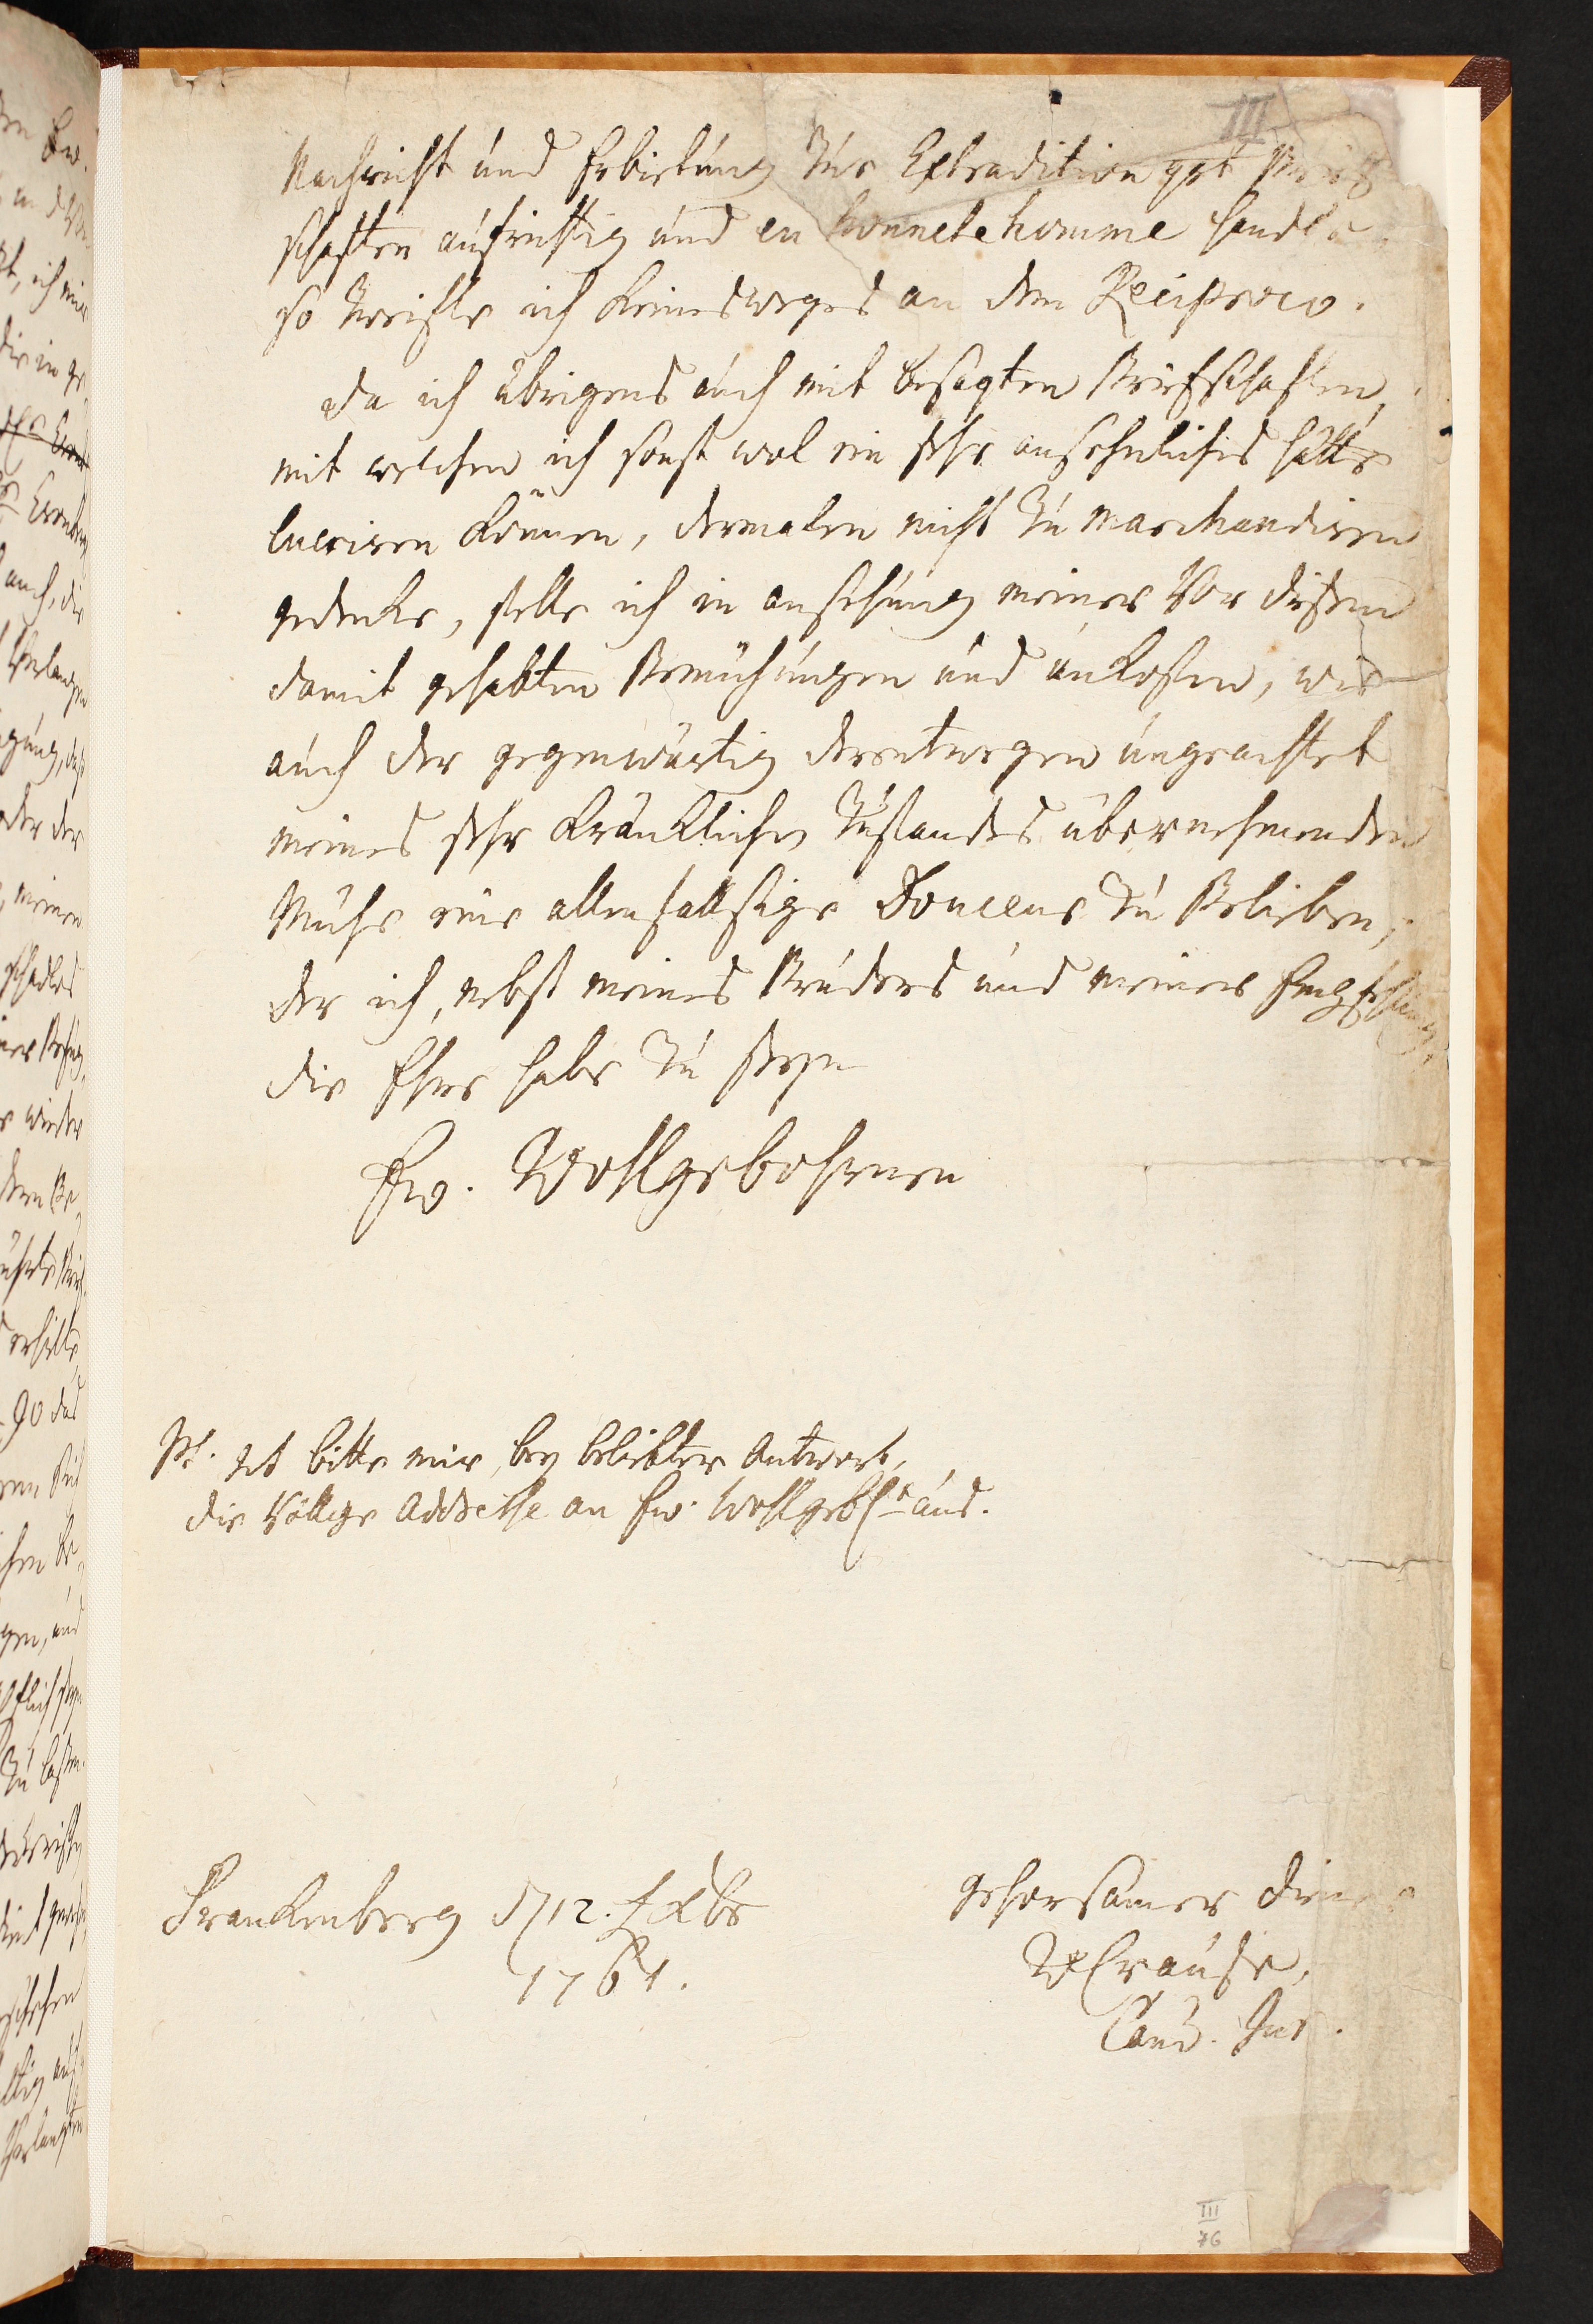 III
Nachricht und Erbietung zur Extradition gdt Brief
schafften aufrichtig und en honnete homme handle
so zweifle ich keinesweges an dem Reciproco.
Da ich übrigens auch mit besagten Briefschafften,
mit welchen ich sonst wol ein sehr ansehnliches hätte
lucriren können, dermalen nicht zu marchandiren
gedencke, stelle ich in ansehung meiner vor diesem
damit gehabten Bemühungen und unkosten, wie
auch der gegenwärtig derentwegen ungeachtet
meines sehr kräncklichen Zustandes übernehmenden
Mühe eine allenfallsige Douceur zu Belieben,
der ich, nebst meines Bruders und meiner Empfehlung,
die Ehre habe zu seyn
Ew. Wohlgebohrnen
PS. Ich bitte mir, bey beliebter Antwort,
die völlige Addresse an Ew. Wohlgeb. aus.
Franckenberg d 12. Xbr
1761.
gehorsamer Diener
Crause,
Cand. Jur.
III
76